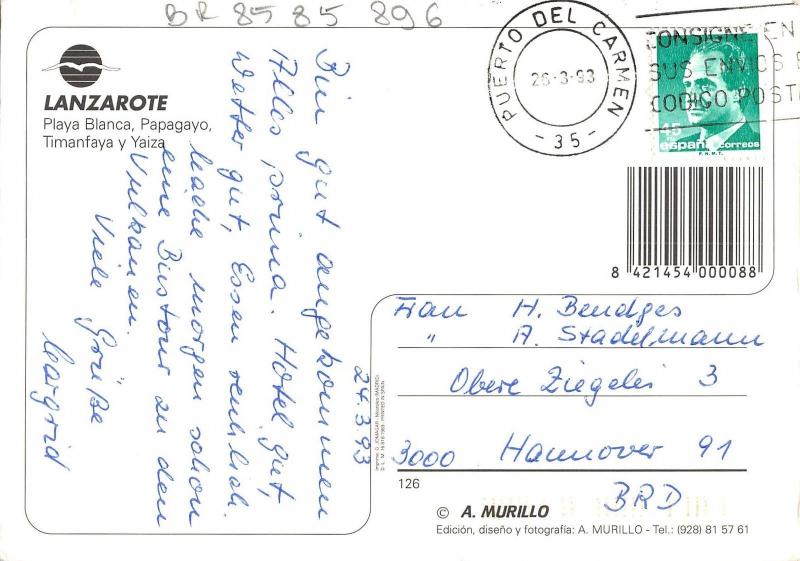 BR 85 85 896
LANZAROTE
Playa Blanca, Papagayo,
Timanfaya y Yaiza
24.3.93
Bin gut angekommen
Alles prima. Hotel gut,
Wetter gut, Essen reichlich.
Mache morgen schon
eine Bustour zu den
Vulkanen.
Viele Grüße
Margrid
PUERTO DEL CARMEN
26-3-93
- 35 -
CONSIGNE EN
SUS ENVIOS E
CODIGO POST
45
españa correos
F.N.M.T.
8 421454 000088
Frau H. Bendges
" A. Stadelmann
Obere Ziegelei 3
3000 Hannover 91
BRD
126
© A. MURILLO
Edición, diseño y fotografía: A. MURILLO - Tel.: (928) 81 57 61